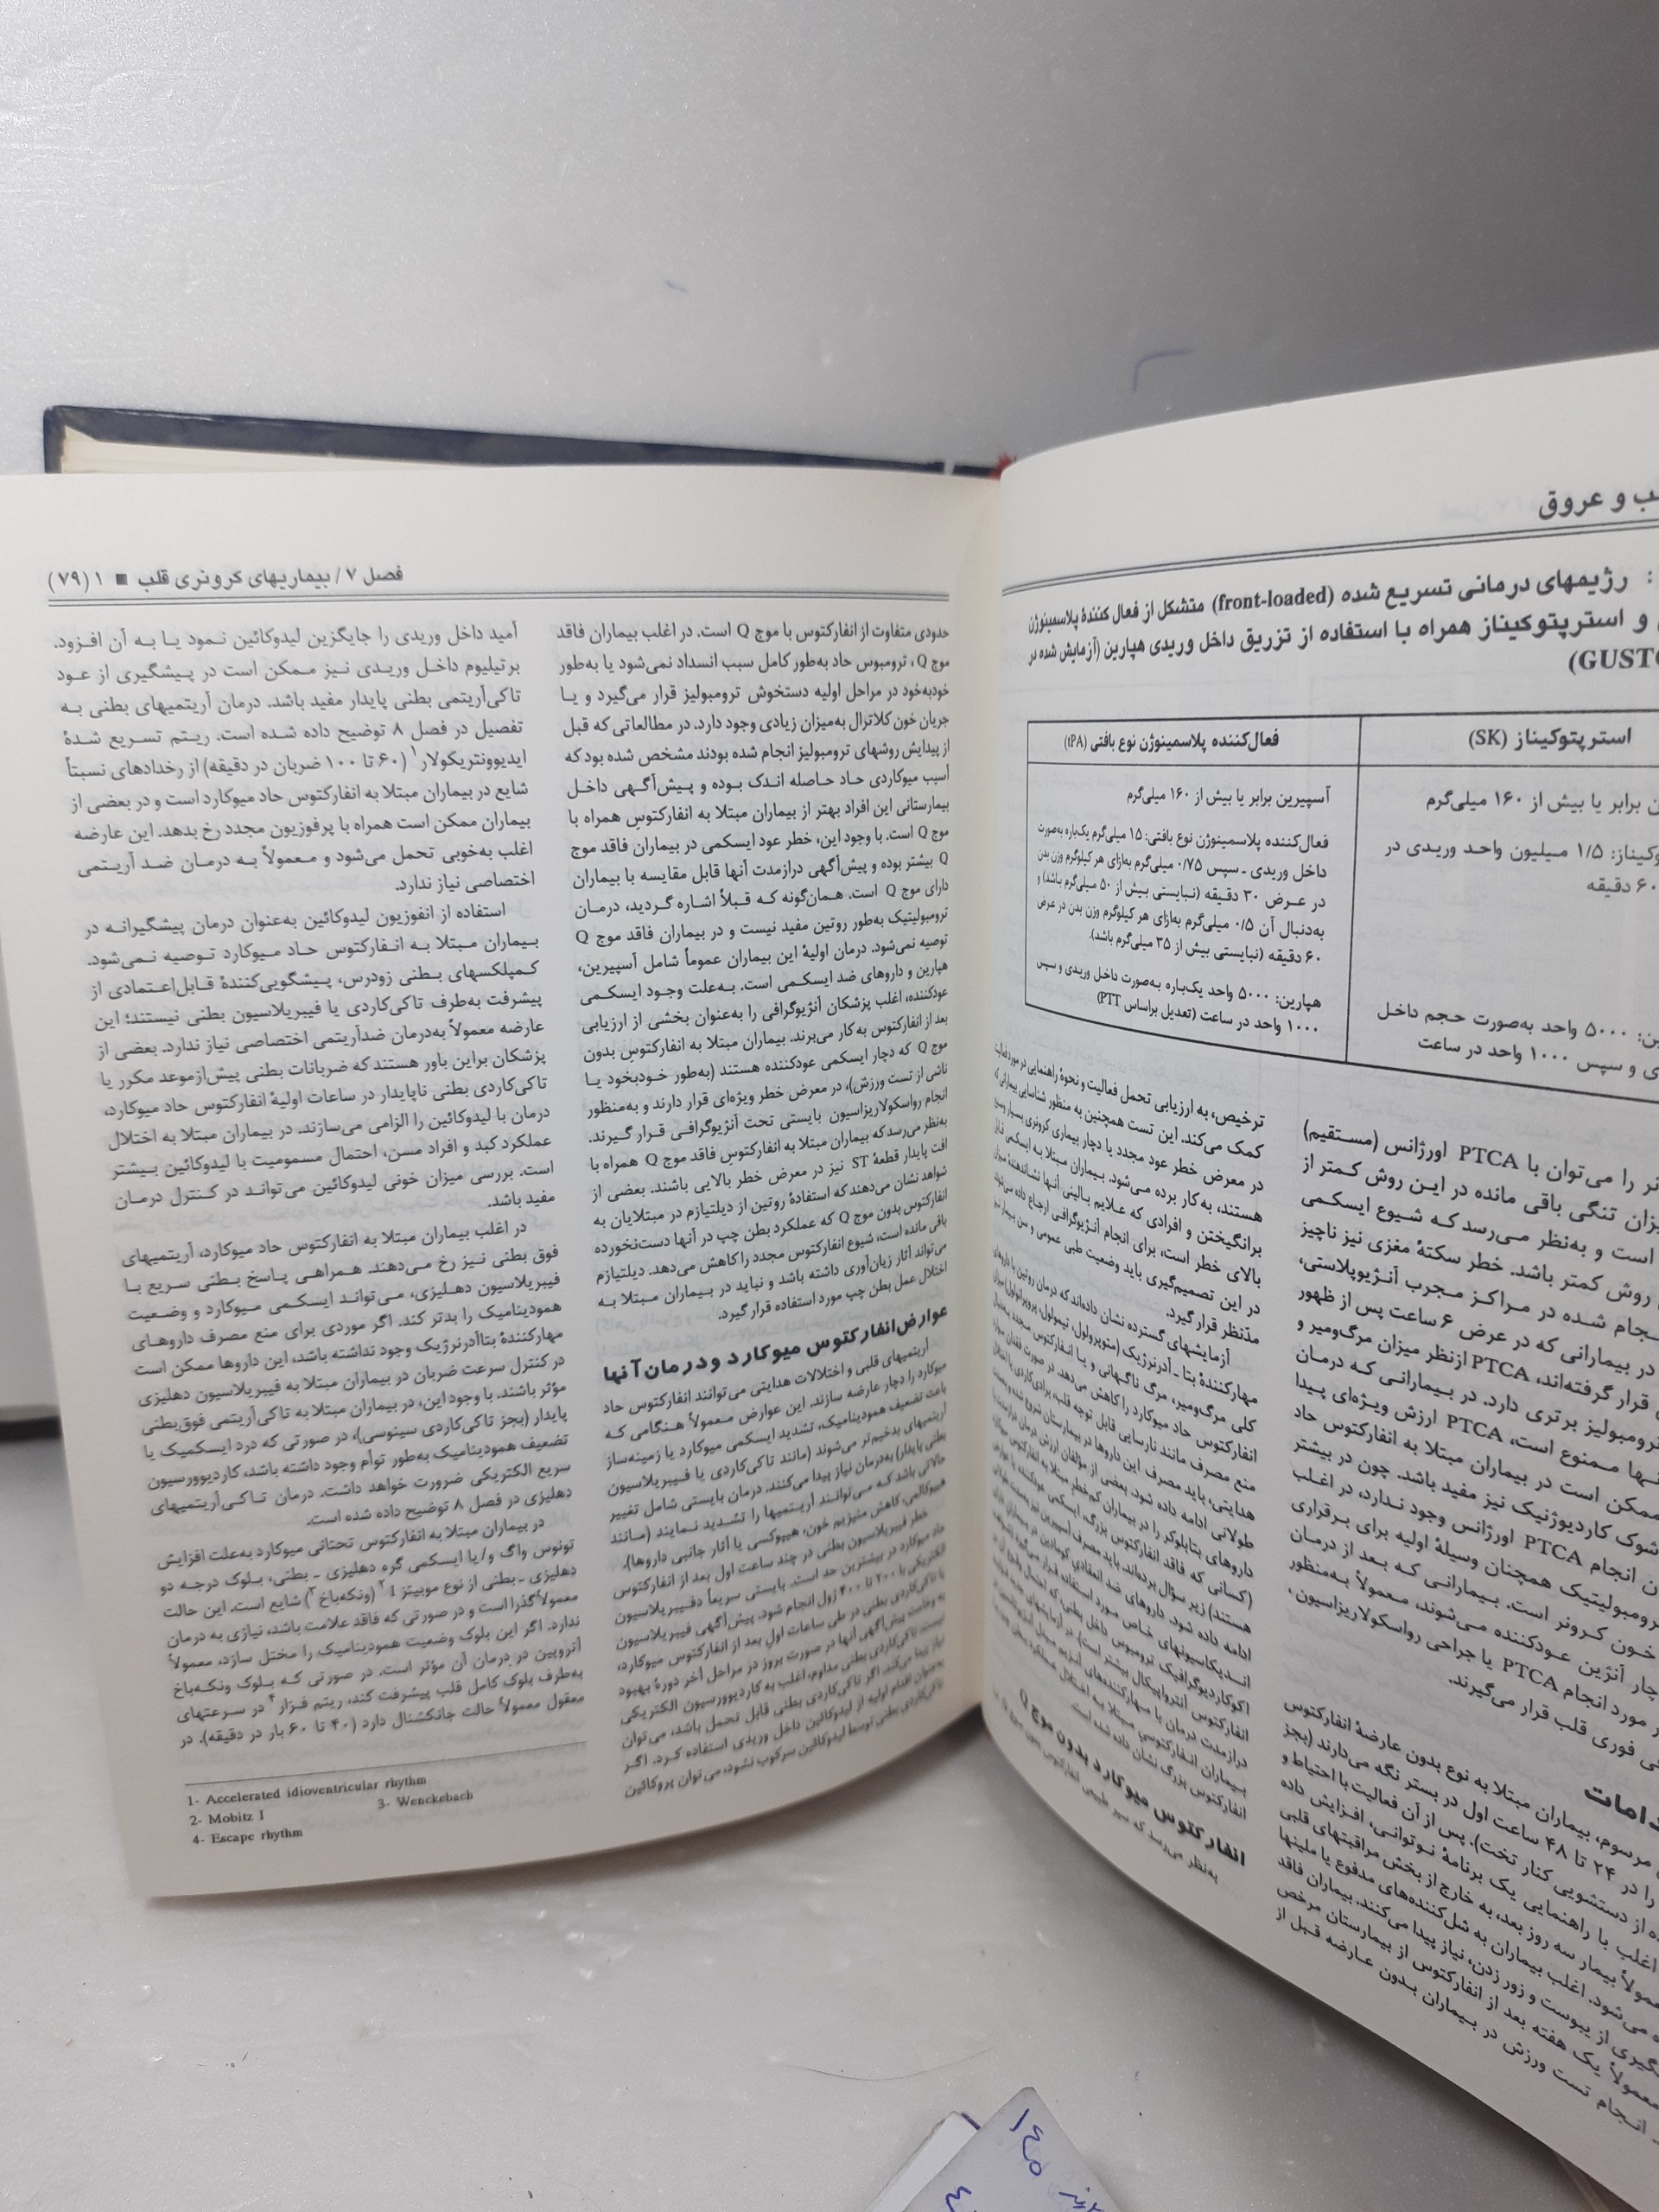 ب و عروق
: رژیمهای درمانی تسریع شده (front-loaded) متشکل از فعال کنندهٔ پلاسمینوژن
و استرپتوکیناز همراه با استفاده از تزریق داخل وریدی هپارین (آزمایش شده در
GUSTO)
استرپتوکیناز (SK)
برابر یا بیش از ۱۶۰ میلی‌گرم
۱/۵ میلیون واحد وریدی در
۶۰ دقیقه
۵۰۰۰ واحد به‌صورت حجم داخل
ی و سپس ۱۰۰۰ واحد در ساعت
فعال‌کننده پلاسمینوژن نوع بافتی (tPA)
آسپیرین برابر یا بیش از ۱۶۰ میلی‌گرم
فعال‌کننده پلاسمینوژن نوع بافتی: ۱۵ میلی‌گرم یک‌باره به‌صورت
داخل وریدی ـ سپس ۰/۷۵ میلی‌گرم به‌ازای هر کیلوگرم وزن بدن
در عرض ۳۰ دقیقه (نبایستی بیش از ۵۰ میلی‌گرم باشد) و
به‌دنبال آن ۰/۵ میلی‌گرم به‌ازای هر کیلوگرم وزن بدن در عرض
۶۰ دقیقه (نبایستی بیش از ۳۵ میلی‌گرم باشد).
هپارین: ۵۰۰۰ واحد یک‌باره به‌صورت داخل وریدی و سپس
۱۰۰۰ واحد در ساعت (تعدیل براساس PTT)
را می‌توان با PTCA اورژانس (مستقیم)
تنگی باقی مانده در این روش کمتر از
است و به‌نظر می‌رسد که شیوع ایسکمی
روش کمتر باشد. خطر سکتهٔ مغزی نیز ناچیز
شده در مراکز مجرب آنژیوپلاستی،
در بیمارانی که در عرض ۶ ساعت پس از ظهور
قرار گرفته‌اند، PTCA ازنظر میزان مرگ‌ومیر و
ترومبولیز برتری دارد. در بیمارانی که درمان
ممنوع است، PTCA ارزش ویژه‌ای پیدا
ممکن است در بیماران مبتلا به انفارکتوس حاد
شوک کاردیوژنیک نیز مفید باشد. چون در بیشتر
انجام PTCA اورژانس وجود ندارد، در اغلب
ترومبولیتیک همچنان وسیلهٔ اولیه برای برقراری
خون کرونر است. بیمارانی که بعد از درمان
آنژین عودکننده می‌شوند، معمولاً به‌منظور
مورد انجام PTCA یا جراحی رواسکولاریزاسیون،
فوری قلب قرار می‌گیرند.
مرسوم، بیماران مبتلا به نوع بدون عارضهٔ انفارکتوس
را در ۲۴ تا ۴۸ ساعت اول در بستر نگه می‌دارند (بجز
از دستشویی کنار تخت). پس از آن فعالیت با احتیاط و
اغلب با راهنمایی یک برنامهٔ نوتوانی، افزایش داده
بیمار سه روز بعد، به خارج از بخش مراقبتهای قلبی
می‌شود. اغلب بیماران به شل‌کننده‌های مدفوع یا ملینها
از یبوست و زور زدن، نیاز پیدا می‌کنند. بیماران فاقد
معمولاً یک هفته بعد از انفارکتوس از بیمارستان مرخص
انجام تست ورزش در بیماران بدون عارضه قبل از
ترخیص، به ارزیابی تحمل فعالیت و نحوهٔ راهنمایی در مورد فعالیت
کمک می‌کند. این تست همچنین به منظور شناسایی بیمارانی که
در معرض خطر عود مجدد یا دچار بیماری کرونری بسیار وسیع
هستند، به‌کار برده می‌شود. بیماران مبتلا به ایسکمی قابل
برانگیختن و افرادی که علایم بالینی آنها نشاندهندهٔ میزان
بالای خطر است، برای انجام آنژیوگرافی ارجاع داده می‌شوند
در این تصمیم‌گیری باید وضعیت طبی عمومی و سن بیمار نیز
مدّنظر قرار گیرد.
آزمایشهای گسترده نشان داده‌اند که درمان روتین با داروهای
مهارکنندهٔ بتا ـ آدرنرژیک (متوپرولول، تیمولول، پروپرانولول) میزان
کلی مرگ‌ومیر، مرگ ناگهانی و یا انفارکتوس مجدد به‌دنبال
انفارکتوس حاد میوکارد را کاهش می‌دهد. در صورت فقدان موارد
منع مصرف مانند نارسایی قابل توجه قلب، برادی‌کاردی یا اختلال
هدایتی، باید مصرف این داروها در بیمارستان شروع شده و به‌مدت
طولانی ادامه داده شود. بعضی از مؤلفان ارزش درمان درازمدت با
داروهای بتابلوکر را در بیماران کم‌خطر مبتلا به انفارکتوس میوکارد
(کسانی که فاقد انفارکتوس بزرگ، ایسکمی عودکننده یا عوارض
هستند) زیر سؤال برده‌اند. باید مصرف آسپیرین نیز به‌مدت طولانی
ادامه داده شود. داروهای ضد انعقادی کومادین در بیماران دارای
اندیکاسیونهای خاص مورد استفاده قرار می‌گیرد
اکوکاردیوگرافیک ترومبوس داخل بطنی که احتمال وقوع آن در
انفارکتوس انتروآپیکال بیشتر است). در آزمایشهای
درازمدت درمان با مهارکننده‌های آنزیم مبدل آنژیوتانسین در
بیماران انفارکتوس مبتلا به اختلال عملکرد بطن چپ
انفارکتوس بزرگ نشان داده شده است.
انفارکتوس میوکارد بدون موج Q
به‌نظر می‌رسد که سیر طبیعی انفارکتوس بدون موج Q تا
فصل ۷ / بیماریهای کرونری قلب ■ ۱ (۷۹)
حدودی متفاوت از انفارکتوس با موج Q است. در اغلب بیماران فاقد
موج Q، ترومبوس حاد به‌طور کامل سبب انسداد نمی‌شود یا به‌طور
خودبه‌خود در مراحل اولیه دستخوش ترومبولیز قرار می‌گیرد و یا
جریان خون کلاترال به‌میزان زیادی وجود دارد. در مطالعاتی که قبل
از پیدایش روشهای ترومبولیز انجام شده بودند مشخص شده بود که
آسیب میوکاردی حاد حاصله اندک بوده و پیش‌آگهی داخل
بیمارستانی این افراد بهتر از بیماران مبتلا به انفارکتوس همراه با
موج Q است. با وجود این، خطر عود ایسکمی در بیماران فاقد موج
Q بیشتر بوده و پیش‌آگهی درازمدت آنها قابل مقایسه با بیماران
دارای موج Q است. همان‌گونه که قبلاً اشاره گردید، درمان
ترومبولیتیک به‌طور روتین مفید نیست و در بیماران فاقد موج Q
توصیه نمی‌شود. درمان اولیهٔ این بیماران عموماً شامل آسپیرین،
هپارین و داروهای ضد ایسکمی است. به‌علت وجود ایسکمی
عودکننده، اغلب پزشکان آنژیوگرافی را به‌عنوان بخشی از ارزیابی
بعد از انفارکتوس به‌کار می‌برند. بیماران مبتلا به انفارکتوس بدون
موج Q که دچار ایسکمی عودکننده هستند (به‌طور خودبخود یا
ناشی از تست ورزش)، در معرض خطر ویژه‌ای قرار دارند و به‌منظور
انجام رواسکولاریزاسیون بایستی تحت آنژیوگرافی قرار گیرند.
به‌نظر می‌رسد که بیماران مبتلا به انفارکتوس فاقد موج Q همراه با
افت پایدار قطعهٔ ST نیز در معرض خطر بالایی باشند. بعضی از
شواهد نشان می‌دهند که استفادهٔ روتین از دیلتیازم در مبتلایان به
انفارکتوس بدون موج Q که عملکرد بطن چپ در آنها دست‌نخورده
باقی مانده است، شیوع انفارکتوس مجدد را کاهش می‌دهد. دیلتیازم
می‌تواند آثار زیان‌آوری داشته باشد و نباید در بیماران مبتلا به
اختلال عمل بطن چپ مورد استفاده قرار گیرد.
عوارض انفارکتوس میوکارد و درمان آنها
آریتمیهای قلبی و اختلالات هدایتی می‌توانند انفارکتوس حاد
میوکارد را دچار عارضه سازند. این عوارض معمولاً هنگامی که
باعث تضعیف همودینامیک، تشدید ایسکمی میوکارد یا زمینه‌ساز
آریتمیهای بدخیم‌تر می‌شوند (مانند تاکی‌کاردی یا فیبریلاسیون
بطنی پایدار) به‌درمان نیاز پیدا می‌کنند. درمان بایستی شامل تغییر
حالاتی باشد که می‌توانند آریتمیها را تشدید نمایند (مانند
هیپوکالمی، کاهش منیزیم خون، هیپوکسی یا آثار جانبی داروها).
خطر فیبریلاسیون بطنی در چند ساعت اول بعد از انفارکتوس
حاد میوکارد در بیشترین حد است. بایستی سریعاً دفیبریلاسیون
الکتریکی با ۲۰۰ تا ۴۰۰ ژول انجام شود. پیش‌آگهی فیبریلاسیون
یا تاکی‌کاردی بطنی در طی ساعات اول بعد از انفارکتوس میوکارد،
به وخامت پیش‌آگهی آنها در صورت بروز در مراحل آخر دورهٔ بهبود
نیست. تاکی‌کاردی بطنی مداوم، اغلب به کاردیوورسیون الکتریکی
نیاز پیدا می‌کند. اگر تاکی‌کاردی بطنی قابل تحمل باشد، می‌توان
به‌عنوان اقدام اولیه از لیدوکائین داخل وریدی استفاده کرد. اگر
تاکی‌کاردی بطنی توسط لیدوکائین سرکوب نشود، می‌توان پروکائین
آمید داخل وریدی را جایگزین لیدوکائین نمود یا به آن افزود.
برتیلیوم داخل وریدی نیز ممکن است در پیشگیری از عود
تاکی‌آریتمی بطنی پایدار مفید باشد. درمان آریتمیهای بطنی به
تفصیل در فصل ۸ توضیح داده شده است. ریتم تسریع شدهٔ
ایدیوونتریکولار¹ (۶۰ تا ۱۰۰ ضربان در دقیقه) از رخدادهای نسبتاً
شایع در بیماران مبتلا به انفارکتوس حاد میوکارد است و در بعضی از
بیماران ممکن است همراه با پرفوزیون مجدد رخ بدهد. این عارضه
اغلب به‌خوبی تحمل می‌شود و معمولاً به درمان ضد آریتمی
اختصاصی نیاز ندارد.
استفاده از انفوزیون لیدوکائین به‌عنوان درمان پیشگیرانه در
بیماران مبتلا به انفارکتوس حاد میوکارد توصیه نمی‌شود.
کمپلکسهای بطنی زودرس، پیشگویی‌کنندهٔ قابل‌اعتمادی از
پیشرفت به‌طرف تاکی‌کاردی یا فیبریلاسیون بطنی نیستند؛ این
عارضه معمولاً به‌درمان ضدآریتمی اختصاصی نیاز ندارد. بعضی از
پزشکان براین باور هستند که ضربانات بطنی پیش‌ازموعد مکرر یا
تاکی‌کاردی بطنی ناپایدار در ساعات اولیهٔ انفارکتوس حاد میوکارد،
درمان با لیدوکائین را الزامی می‌سازند. در بیماران مبتلا به اختلال
عملکرد کبد و افراد مسن، احتمال مسمومیت با لیدوکائین بیشتر
است. بررسی میزان خونی لیدوکائین می‌تواند در کنترل درمان
مفید باشد.
در اغلب بیماران مبتلا به انفارکتوس حاد میوکارد، آریتمیهای
فوق بطنی نیز رخ می‌دهند. همراهی پاسخ بطنی سریع با
فیبریلاسیون دهلیزی، می‌تواند ایسکمی میوکارد و وضعیت
همودینامیک را بدتر کند. اگر موردی برای منع مصرف داروهای
مهارکنندهٔ بتاآدرنرژیک وجود نداشته باشد، این داروها ممکن است
در کنترل سرعت ضربان در بیماران مبتلا به فیبریلاسیون دهلیزی
مؤثر باشند. با وجود این، در بیماران مبتلا به تاکی‌آریتمی فوق‌بطنی
پایدار (بجز تاکی‌کاردی سینوسی)، در صورتی که درد ایسکمیک یا
تضعیف همودینامیک به‌طور توأم وجود داشته باشد، کاردیوورسیون
سریع الکتریکی ضرورت خواهد داشت. درمان تاکی‌آریتمیهای
دهلیزی در فصل ۸ توضیح داده شده است.
در بیماران مبتلا به انفارکتوس تحتانی میوکارد به‌علت افزایش
تونوس واگ و/یا ایسکمی گره دهلیزی ـ بطنی، بلوک درجه دو
دهلیزی ـ بطنی از نوع موبیتز I² (ونکه‌باخ³) شایع است. این حالت
معمولاً گذرا است و در صورتی که فاقد علامت باشد، نیازی به درمان
ندارد. اگر این بلوک وضعیت همودینامیک را مختل سازد، معمولاً
آتروپین در درمان آن مؤثر است. در صورتی که بلوک ونکه‌باخ
به‌طرف بلوک کامل قلب پیشرفت کند، ریتم فرار⁴ در سرعتهای
معقول معمولاً حالت جانکشنال دارد (۴۰ تا ۶۰ بار در دقیقه). در
1- Accelerated idioventricular rhythm
2- Mobitz I
3- Wenckebach
4- Escape rhythm